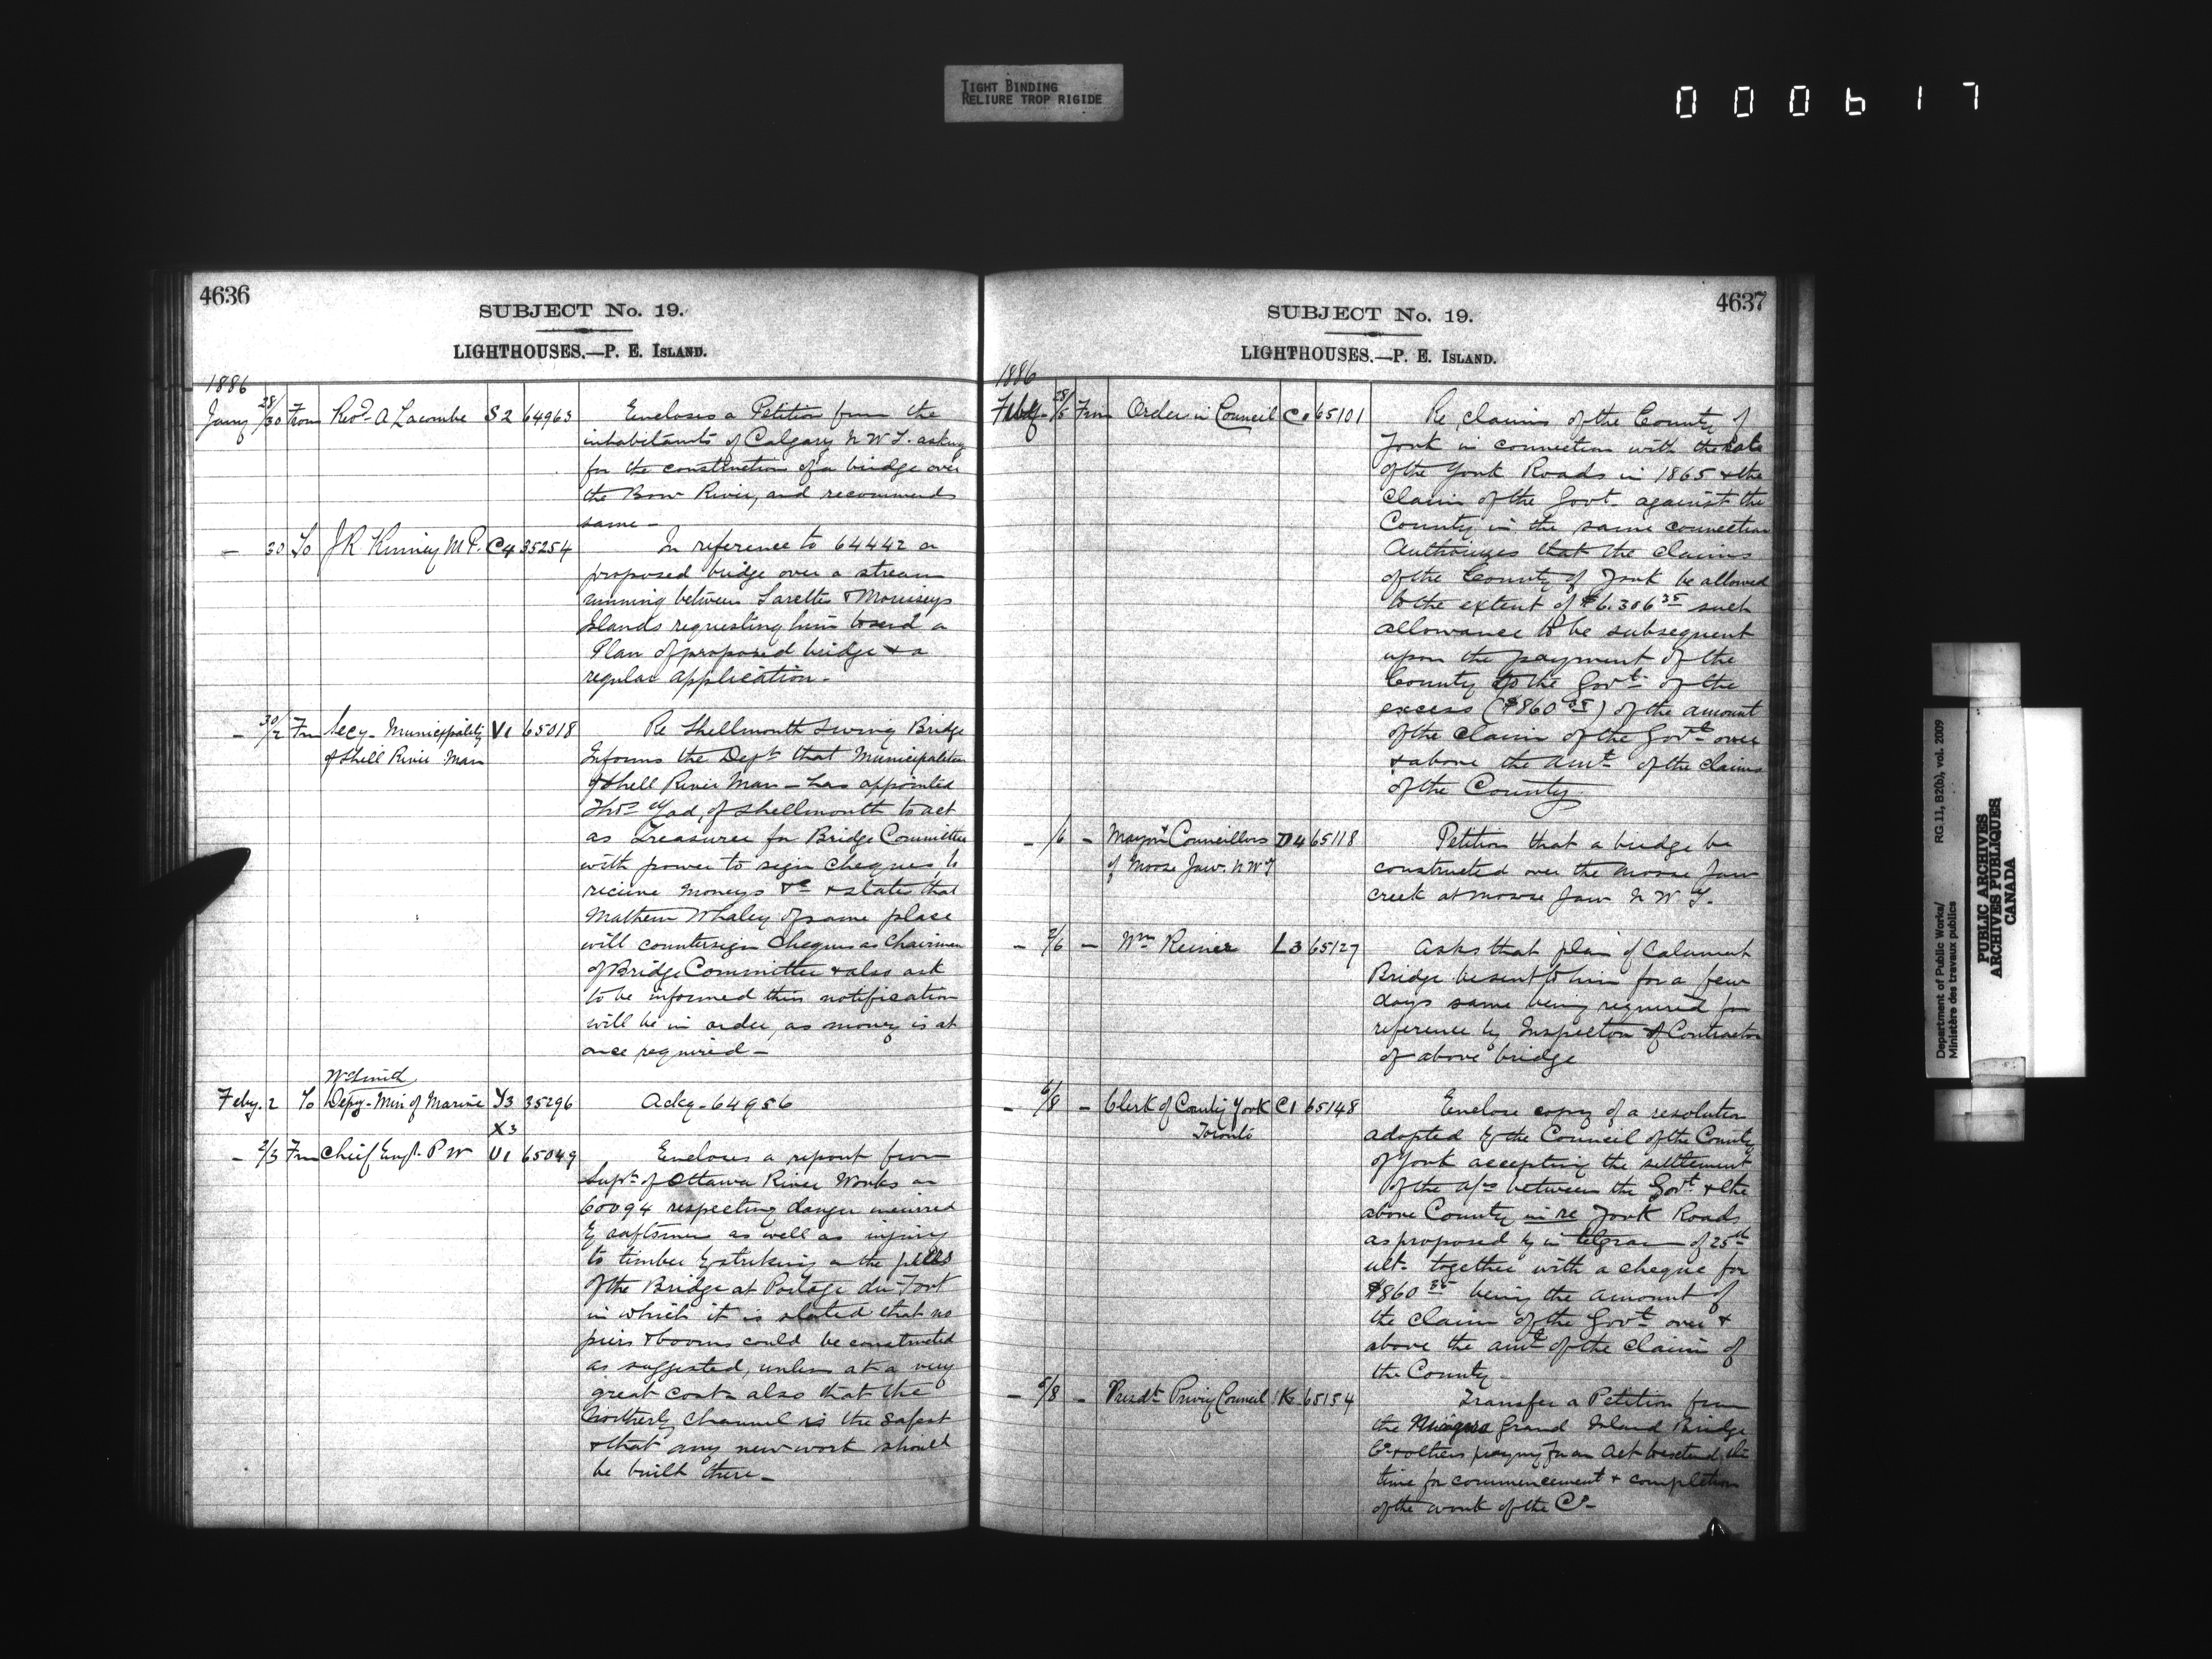 TIGHT BINDING
RELIURE TROP RIGIDE
000617
4636
SUBJECT No. 19.
LIGHTHOUSES.—P. E. ISLAND.
1886
Jany 28/30 From Revd. A Lacombe S2 64963 Encloses a Petition from the
inhabitants of Calgary N.W.T. asking
for the construction of a bridge over
the Bow River, and recommends
same -
- 30 To J R Kinney M.P. C4 35254 In reference to 64442 on
proposed bridge over a stream
running between Surettes & Morriseys
Islands requesting him to send a
Plan of proposed bridge & a
regular application.
- 30/2 Fm Secy- Municipality V1 65018 Re Shellmouth Swing Bridge
of Shell River Man Informs the Dept that Municipalities
of Shell River Man - has appointed
Thos of Shellmouth to act
as Treasurer for Bridge Committee
with power to sign cheques, to
recieve moneys &c & states that
Mathew Whaley of same place
will countersign cheques as Chairman
of Bridge Committee & also ask
to be informed this notification
will be in order, as money is at
once required -
Wm Smith
Feby. 2 To Depy- Min of Marine Y3 35296 Ackg. 64956
X3
- 2/3 Fm Chief Engr. P W U1 65049 Encloses a report from
Supt. of Ottawa River Works on
60094 respecting danger incurred
by raftsmen as well as injury
to timber by striking on the piers
of the Bridge at Portage du Fort
in which it is stated that no
piers & booms could be constructed
as suggested, unless at a very
great cost also that the
Northerly channel is the safest
& that any new work should
be built there -
4637
SUBJECT No. 19.
LIGHTHOUSES.—P. E. ISLAND.
1886
Feby 28/5 Fm Order in Council C. 65101 Re claims of the County of
York in connection with the sale
of the York Roads in 1865 & the
claim of the Govt. against the
County in the same connection
Authorizes that the claims
of the County of York be allowed
to the extent of $6.306 35 such
allowance to be subsequent
upon the payment of the
County to the Govt. of the
excess ($860 35) of the amount
of the claim of the Govt. over
& above the amt. of the claims
of the County
- /6 - Mayor & Councillors D4 65118 Petition that a bridge be
of Moose Jaw. N.W.T constructed over the Moose Jaw
creek at Moose Jaw N.W.T.
- 2/6 - Wm Reiner L3 65127 Asks that plan of Calumet
Bridge be sent to him for a few
days same being required for
reference by Inspector & Contractor
of above bridge
- 6/8 - Clerk of County York C1 65148 Enclose copy of a resolution
Toronto adopted by the Council of the County
of York accepting the settlement
of the a/cs between the Govt. & the
above County in re York Roads
as proposed by in telgram of 25th
ult. together with a cheque for
$860 35 being the amount of
the claim of the Govt. over &
above the amt of the claim of
the County -
- 6/8 - Presdt Privy Council K 65154 Transfer a Petition from
the Niagara Grand Island Bridge
Co & others praying for an Act to extend the
time for commencement & completion
of the work of the Co -
Department of Public Works/
Ministère des travaux publics
RG 11, B2(b), vol. 2009
PUBLIC ARCHIVES
ARCHIVES PUBLIQUES
CANADA